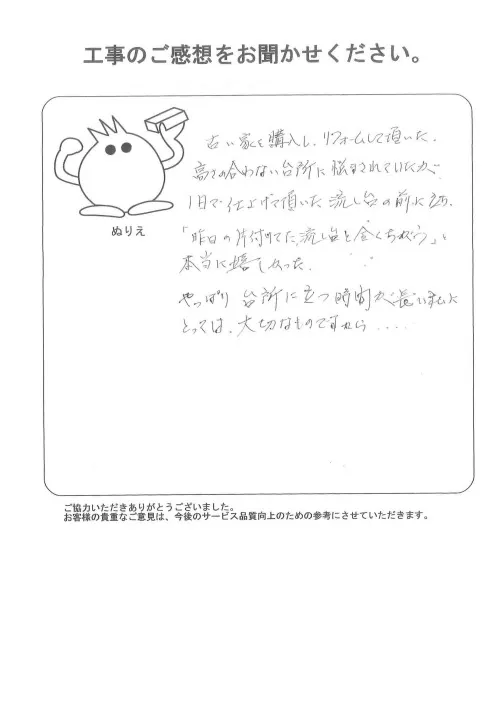 工事のご感想をお聞かせください。
ぬりえ
古い家を購入し、リフォームして頂いた。
高さの合わない台所に悩まされていたが
1日で仕上げて頂いた流し台の前に立ち、
「昨日の片付けてた流し台と全くちがう」と
本当に嬉しかった.
やっぱり 台所に立つ時間が長い私に
とっては、大切なものですから....
ご協力いただきありがとうございました。
お客様の貴重なご意見は、今後のサービス品質向上のための参考にさせていただきます。